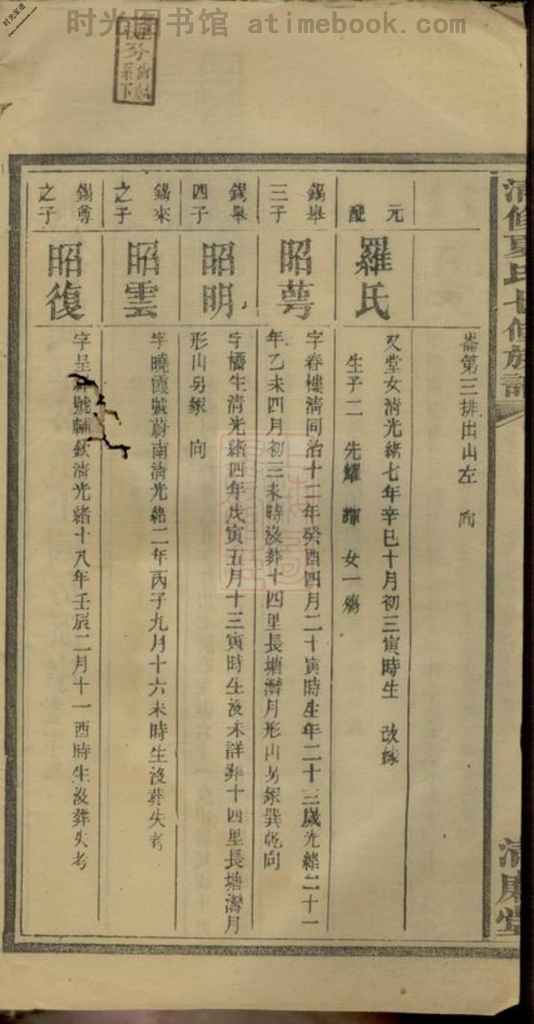 时光图书馆 atimebook.com
时光图书馆
清修夏氏七修族譜
清康堂
崙第三排出山左 向
元配
羅氏
文堂女清光緒七年辛巳十月初三寅時生 改嫁
生子二 先耀 輝 女一殤
錫舉三子
昭萼
字春樓清同治十二年癸酉四月二十寅時生年二十三歲光緒二十一
年乙未四月初三未時沒葬十四里長塘灣月形山另冢巽乾向
錫舉四子
昭明
字橋生清光緒四年戊寅五月十三寅時生沒未詳葬十四里長塘灣月
形山另冢 向
錫來之子
昭雲
字曉霞號蔚南清光緒二年丙子九月十六未時生沒葬失考
錫尊之子
昭復
字呈 號輔欽清光緒十八年壬辰二月十一酉時生沒葬失考